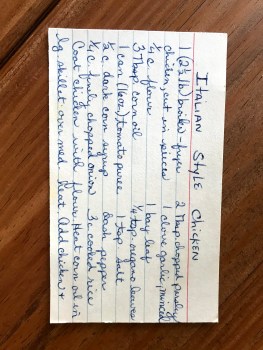 ITALIAN STYLE CHICKEN
1 (2½ lb) broiler-fryer 2 Tbsp chopped parsley
chicken, cut in pieces 1 clove garlic, minced
¼ c flour 1 bay leaf
3 Tbsp corn oil ¼ tsp oregano leaves
1 can (16oz) tomato puree 1 tsp salt
½ c dark corn syrup dash pepper
¼ c finely chopped onion 3 c cooked rice
Coat chicken with flour. Heat corn oil in
lg skillet over med heat. Add chicken +